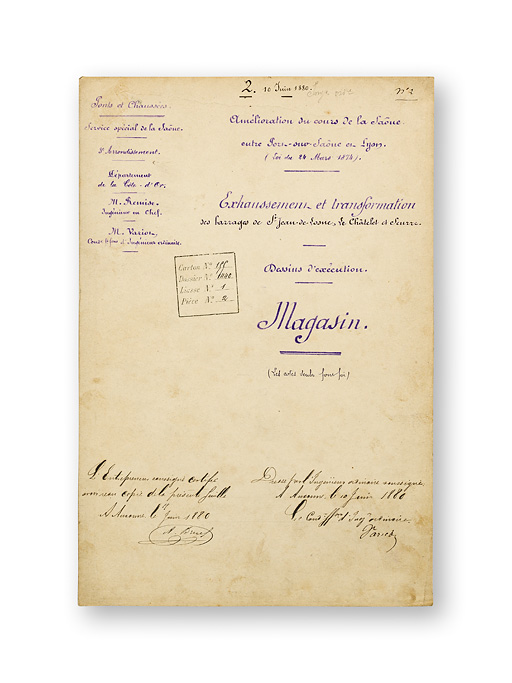 2. 10 Juin 1880.
n° 2
Ponts et Chaussées.
Service spécial de la Saône.
Arrondissement.
Département
de la Côte-d'Or.
M.
Ingénieur en Chef.
M. Variot,
Cond. ff. d'Ingénieur ordinaire.
Carton N°
Dossier N°
Liasse N° 1
Pièce N° 2
Amélioration du cours de la Saône
entre Port-sur-Saône et Lyon.
(Loi du 24 Mars 1874)
Exhaussement et transformation
des barrages de St Jean-de-Losne, Le Châtelet et Seurre.
Dessins d'exécution.
Magasin.
(Les cotes seules font foi)
L'Entrepreneur soussigné certifie
avoir reçu copie de la présente feuille
A Auxonne le Juin 1880
Dressé par l'Ingénieur ordinaire soussigné
A Auxonne le 10 Juin 1880
Le Cond. ffons d'Ing. ordinaire
Variot